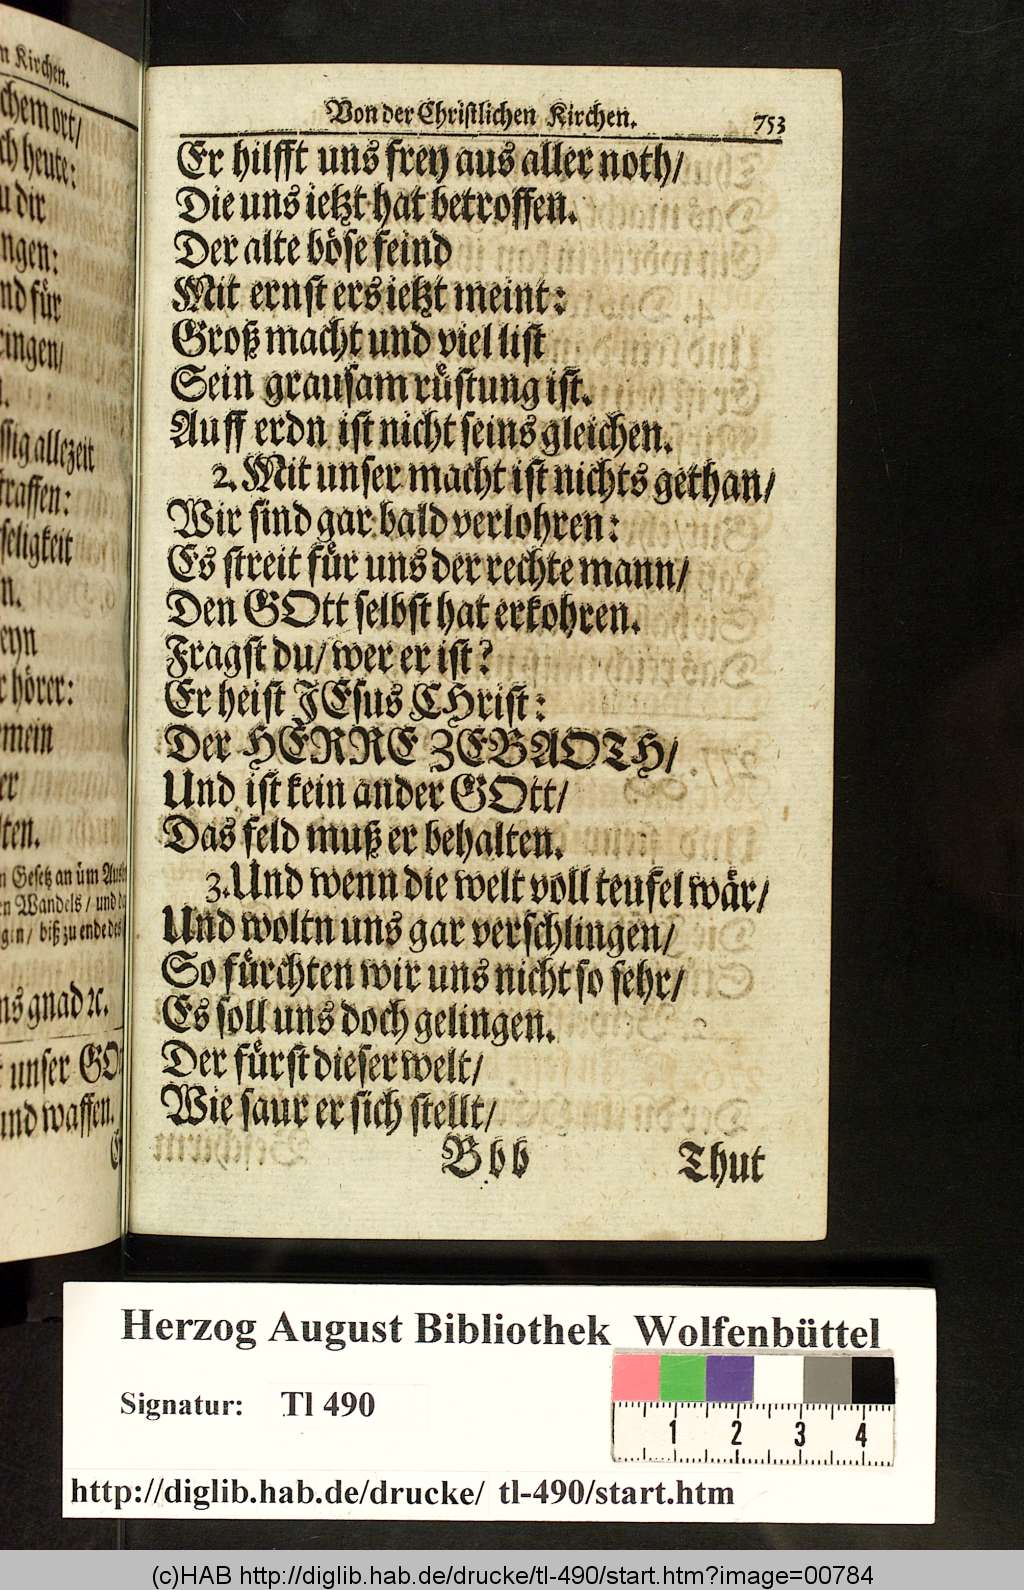 n Kirchen.
chem ort/
ch heute:
u dir
ngen:
nd für
ringen/
ssig allezeit
traffen:
seligkeit
n.
seyn
r hörer:
mein
er
lten.
n Gesetz an üm
en Wandels / und
gen/ biß zu ende des
ns gnad ꝛc.
t unser GO
und waffen.
Von der Christlichen Kirchen. 753
Er hilfft uns frey aus aller noth/
Die uns ietzt hat betroffen.
Der alte böse feind
Mit ernst ers ietzt meint:
Groß macht und viel list
Sein grausam rüstung ist.
Auff erdn ist nicht seins gleichen.
2. Mit unser macht ist nichts gethan/
Wir sind gar bald verlohren:
Es streit für uns der rechte mann/
Den GOtt selbst hat erkohren.
Fragst du/ wer er ist?
Er heist JEsus CHrist:
Der HERRE ZEBAOTH/
Und ist kein ander GOtt/
Das feld muß er behalten.
3. Und wenn die welt voll teufel wär/
Und woltn uns gar verschlingen/
So fürchten wir uns nicht so sehr/
Es soll uns doch gelingen.
Der fürst dieser welt/
Wie saur er sich stellt/
Bbb Thut
Herzog August Bibliothek Wolfenbüttel
Signatur: Tl 490
1 2 3 4
http://diglib.hab.de/drucke/ tl-490/start.htm
(c)HAB http://diglib.hab.de/drucke/tl-490/start.htm?image=00784